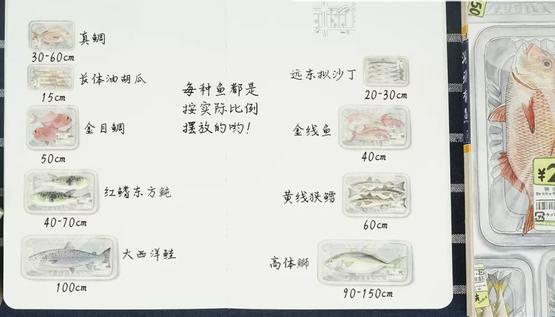 真鲷
30-60cm
长体油胡瓜
15cm
金目鲷
50cm
红鳍东方鲀
40-70cm
大西洋鲑
100cm
每种鱼都是
按实际比例
摆放的哟!
远东拟沙丁
20-30cm
金线鱼
40cm
黄线狭鳕
60cm
高体鰤
90-150cm
50
¥2